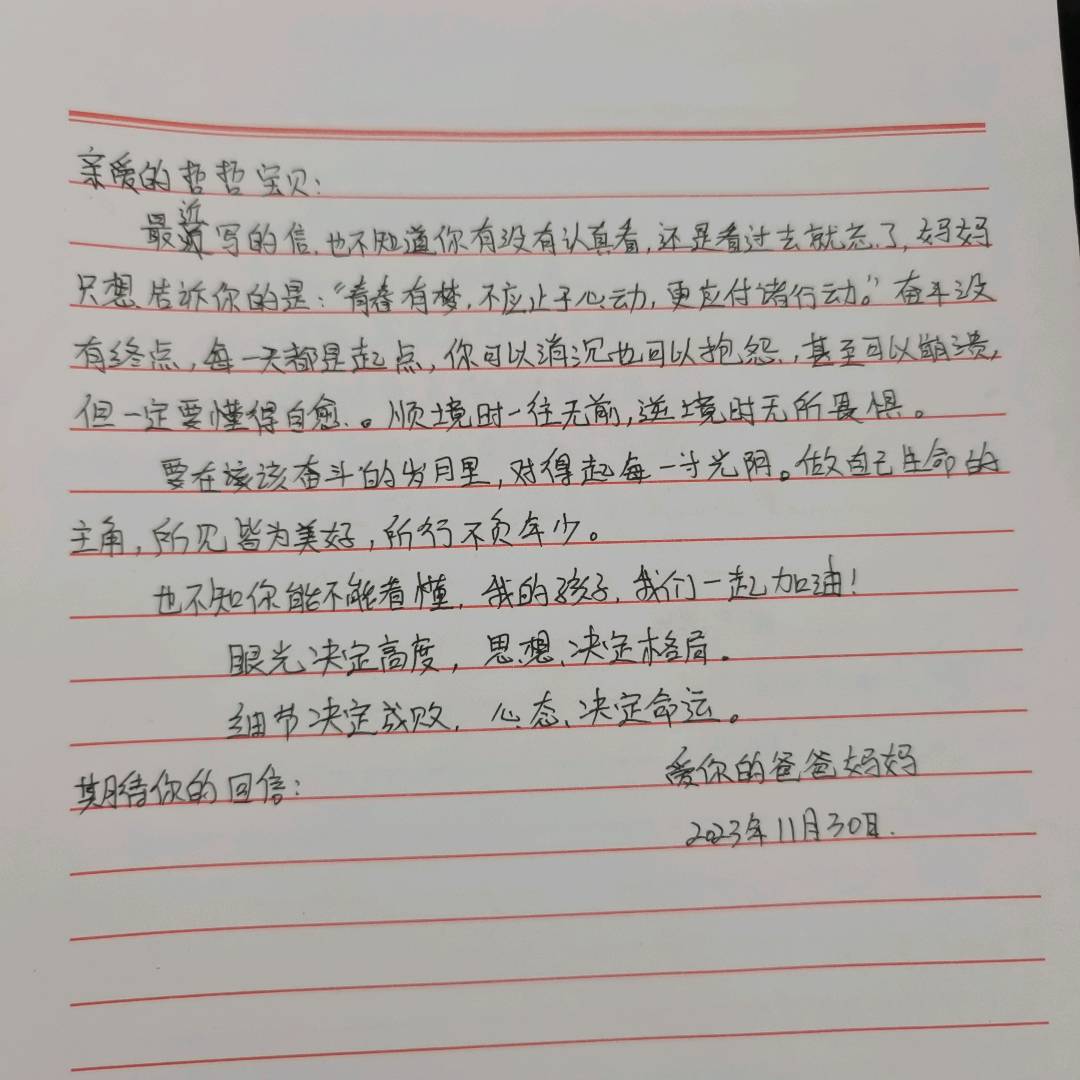 亲爱的哲哲宝贝：
最近写的信，也不知道你有没有认真看，还是看过去就忘了，妈妈
只想告诉你的是："青春有梦，不应止于心动，更应付诸行动。"奋斗没
有终点，每一天都是起点，你可以消沉也可以抱怨，甚至可以崩溃，
但一定要懂得自愈。顺境时一往无前，逆境时无所畏惧。
要在该该奋斗的岁月里，对得起每一寸光阴。做自己生命的
主角，所见皆为美好，所行不负年少。
也不知你能不能看懂，我的孩子，我们一起加油！
眼光决定高度，思想决定格局。
细节决定成败，心态决定命运。
期待你的回信：
爱你的爸爸妈妈
2023年11月30日.